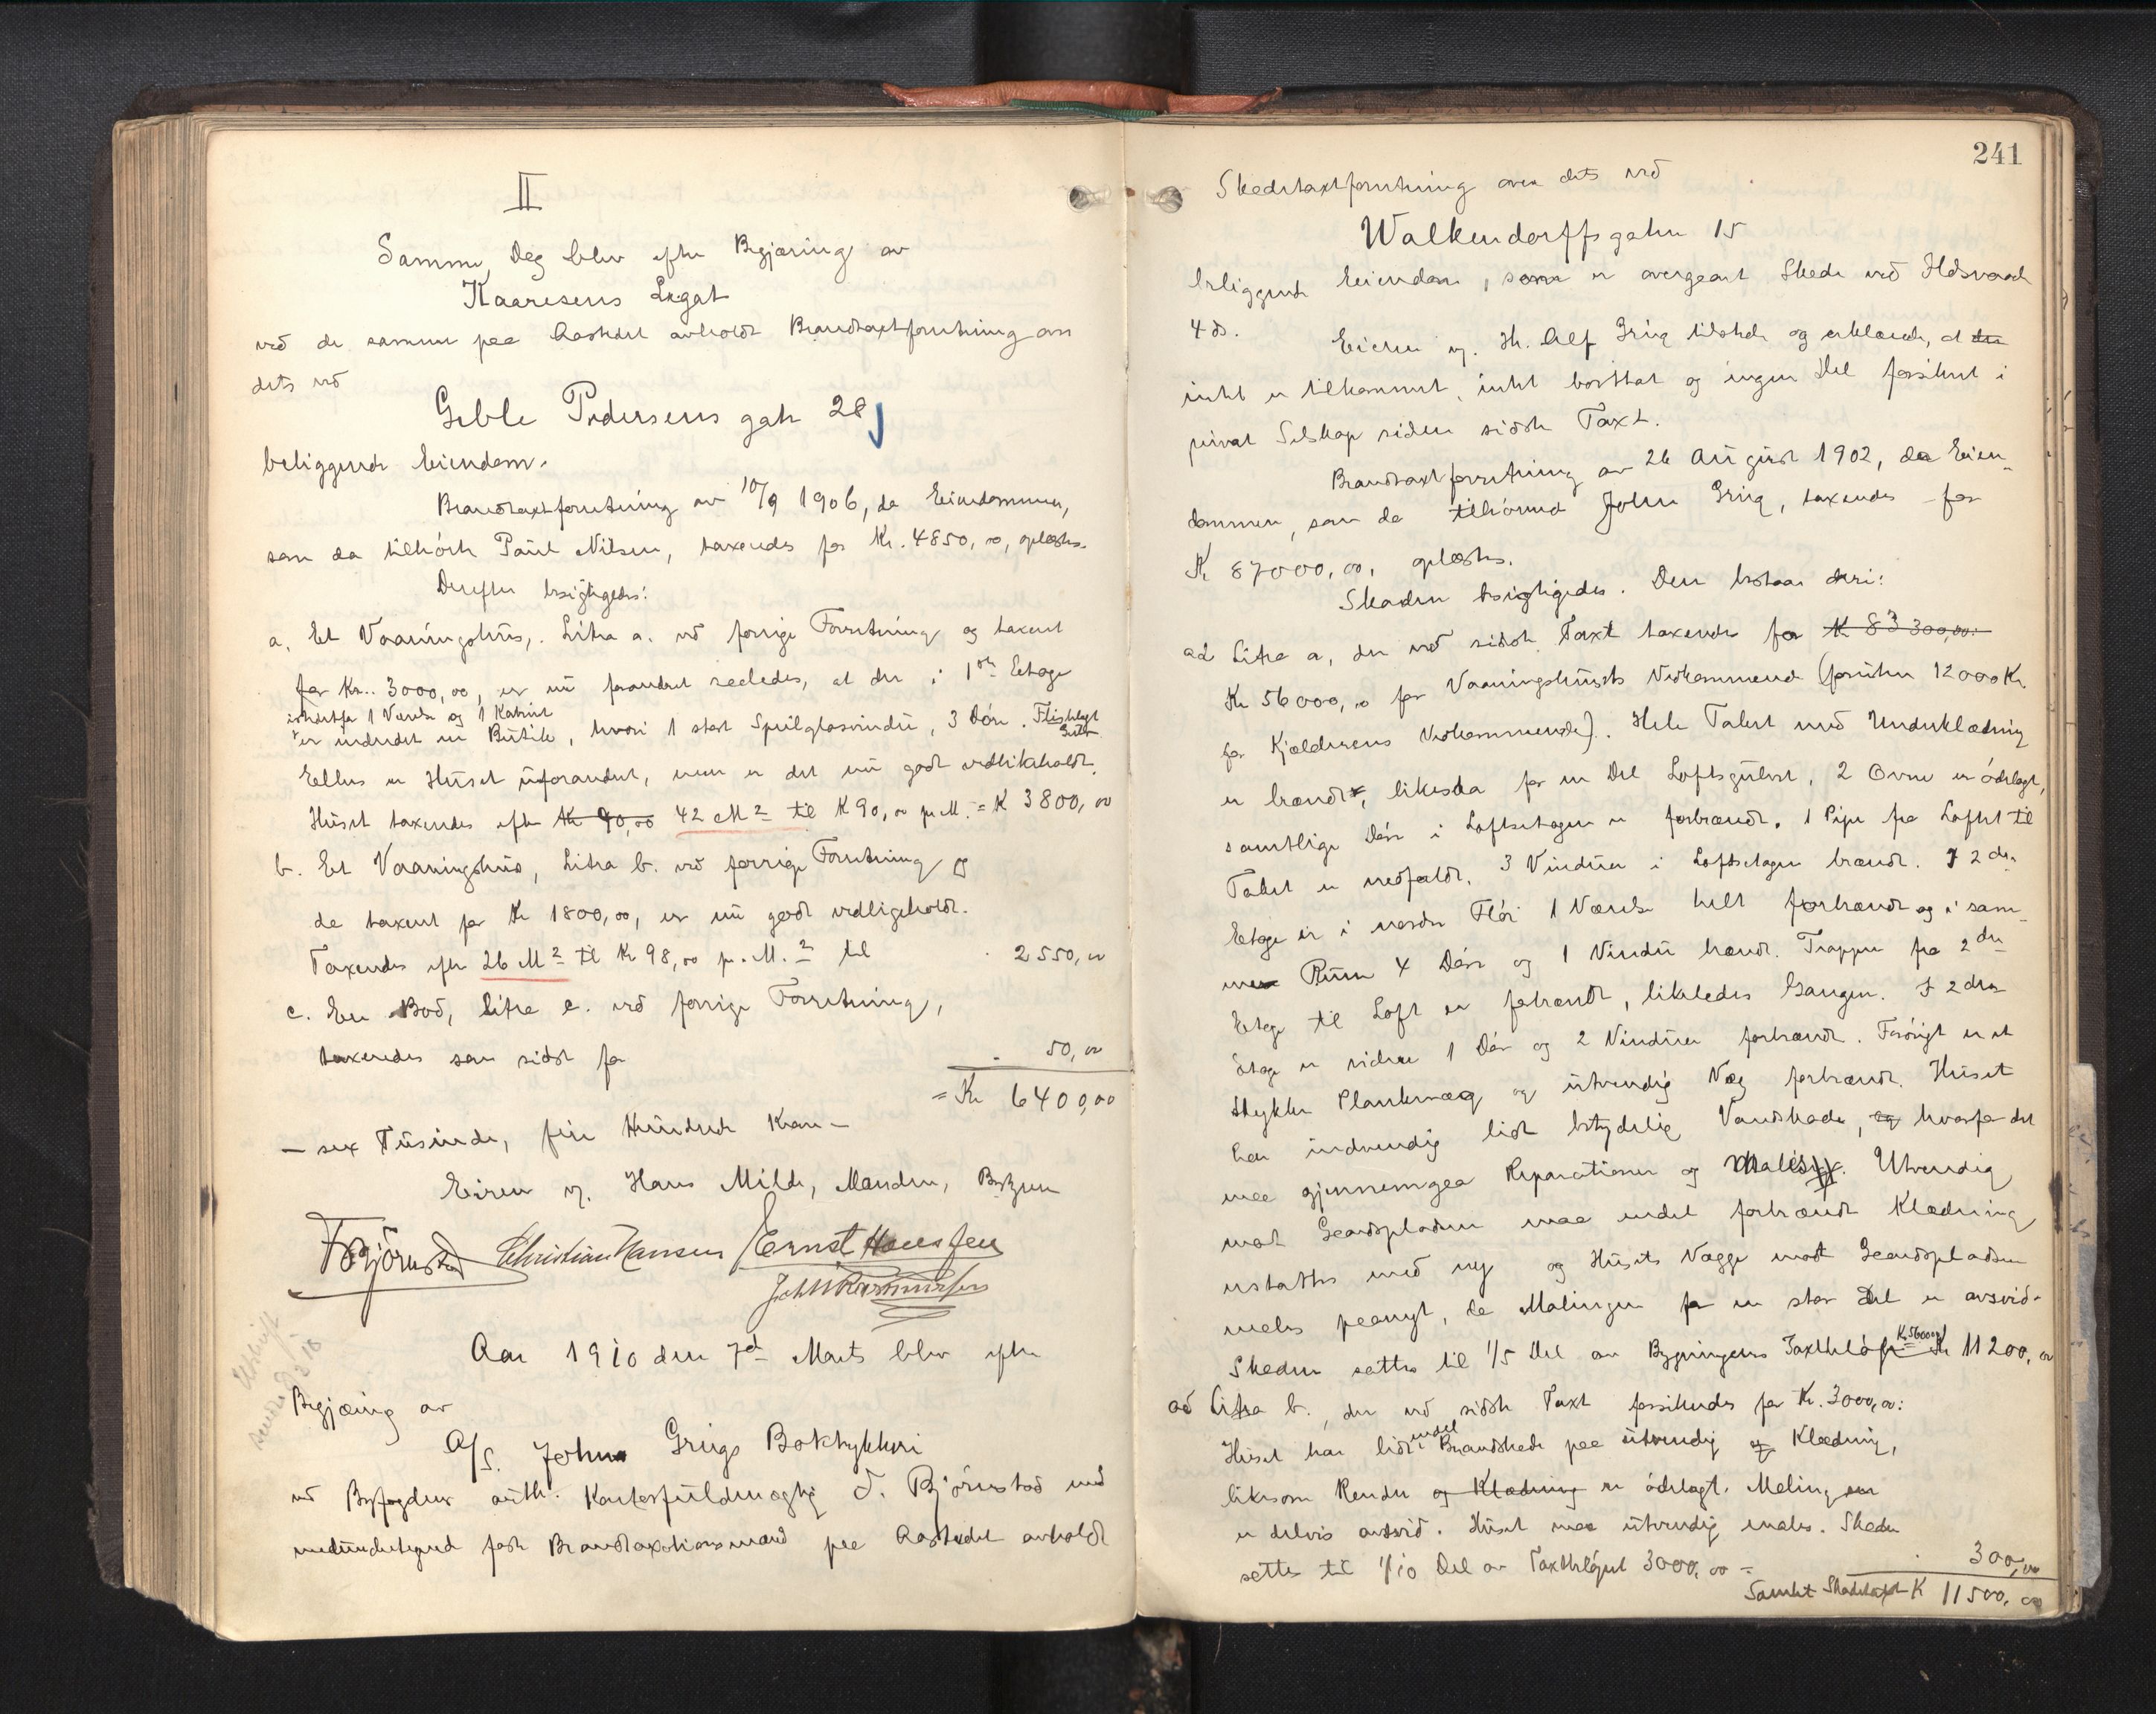 II
Samme Dag blev efter Begjæring av
Kaaresens Legat
ved de samme paa Aastedet avholdt Brandtaxtforretning over
dets ved
Geble Pedersens gate 28
beliggende Eiendom.
Brandtaxtforretning av 10/9 1906, da Eiendommen,
som da tilhørte Paul Nilsen, taxeredes for Kr. 4850,00, oplæstes.
Derefter besigtigedes:
a. Et Vaaningshus, Litra a. ved forrige Forretning og taxeret
for Kr. 3000,00, er nu forandret saaledes, at der i 1ste Etage
istedetfor 1 Værelse og 1 Kabinet
er indredet en Butik, hvori 1 stort Speilglasvindu, 3 Døre. Flislagt
Gulv
Ellers er Huset uforandret, men er det nu godt vedlikeholdt.
Huset taxeredes efter Kr 90,00 42 M2 til K 90,00 pr M. = K 3800,00
b. Et Vaaningshus, Litra b. ved forrige Forretning og
da taxeret for Kr 1800,00, er nu godt vedligeholdt.
Taxeredes efter 26 M2 til Kr 98,00 pr. M.2 til 2550,00
c. En Bod, Litra c. ved forrige Forretning,
taxeredes som sidst for 50,00
= Kr 6400,00
— sex Tusinde, fire Hundrede Kroner —
Eieren v. Hans Milde, Manden, Bergen
T Bjørnstad Christian Hansen Ernst Hanssen
John Rasmussen
Utskrift
sendt 3 10
Aar 1910 den 7de Marts blev efter
Begjæring av
A/S. John Griegs Boktrykkeri
ved Byfogdens auth. Kontorfuldmægtig T. Bjørnstad med
medundertegnede faste Brandtaxationsmænd paa Aastedet avholdt
241
Skadetaxtforretning over dets ved
Walkendorffsgaten 15
beliggende Eiendom, som er overgaaet Skade ved Ildsvaade
4 ds.
Eieren v. Hr. Alf Grieg tilstede og erklærede, at der
intet er tilkommet, intet borttat og ingen Del forsikret i
privat Selskap siden sidste Taxt.
Brandtaxtforretning av 26 August 1902, da Eien-
dommen, som da tilhørende John Grieg, taxeredes for
Kr 87000,00, oplæstes.
Skaden besigtigedes. Den bestaar deri:
ad Litra a, der ved sidste Taxt taxeredes for K 83300,00.
Kr 56000,00 for Vaaningshusets Vedkommende (foruten 12000 Kr.
for Kjælderens Vedkommende). Hele Taket med Underklædning
er brændt, likesaa for en Del Loftsgulvet, 2 Ovne er ødelagt,
samtlige Døre i Loftsetagen er forbrændt. 1 Pipe fra Loftet til
Taket er nedfaldt. 3 Vinduer i Loftsetagen brændt. I 2den
Etage er i nordre Fløi 1 Værelse helt forbrændt og i sam-
me Rum 4 Døre og 1 Vindu brændt. Trappen fra 2den
Etage til Loft er forbrændt, likeledes Gangen. I 2den
Etage er videre 1 Dør og 2 Vinduer forbrændt. Forøvrigt er et
Stykke Plankevæg og utvendig Væg forbrændt. Huset
har indvendig lidt betydelig Vandskade, og hvorfor det
maa gjennemgaa Reparationer og Males. Utvendig
mot Gaardspladsen maa endel forbrændt Klædning
erstattes med ny og Husets Vægge mot Gaardspladsen
males paanyt, da Malingen for en stor Del er avsvid-
Skaden sættes til 1/5 Del av Bygningens Taxtbeløp Kr. 56000 = Kr 11200,00
ad Litra b., der ved sidste Taxt forsikredes for Kr. 3000,00:
Huset har lidt endel Brandskade paa utvendig og Klædning,
likesom Render og Klædning er ødelagt. Maling en
er delvis avsvid. Huset maa utvendig males. Skaden
sættes til 1/10 Del av Taxtbeløpet 3000,00 = 300,00
Samlet Skadetaxt K 11500,00